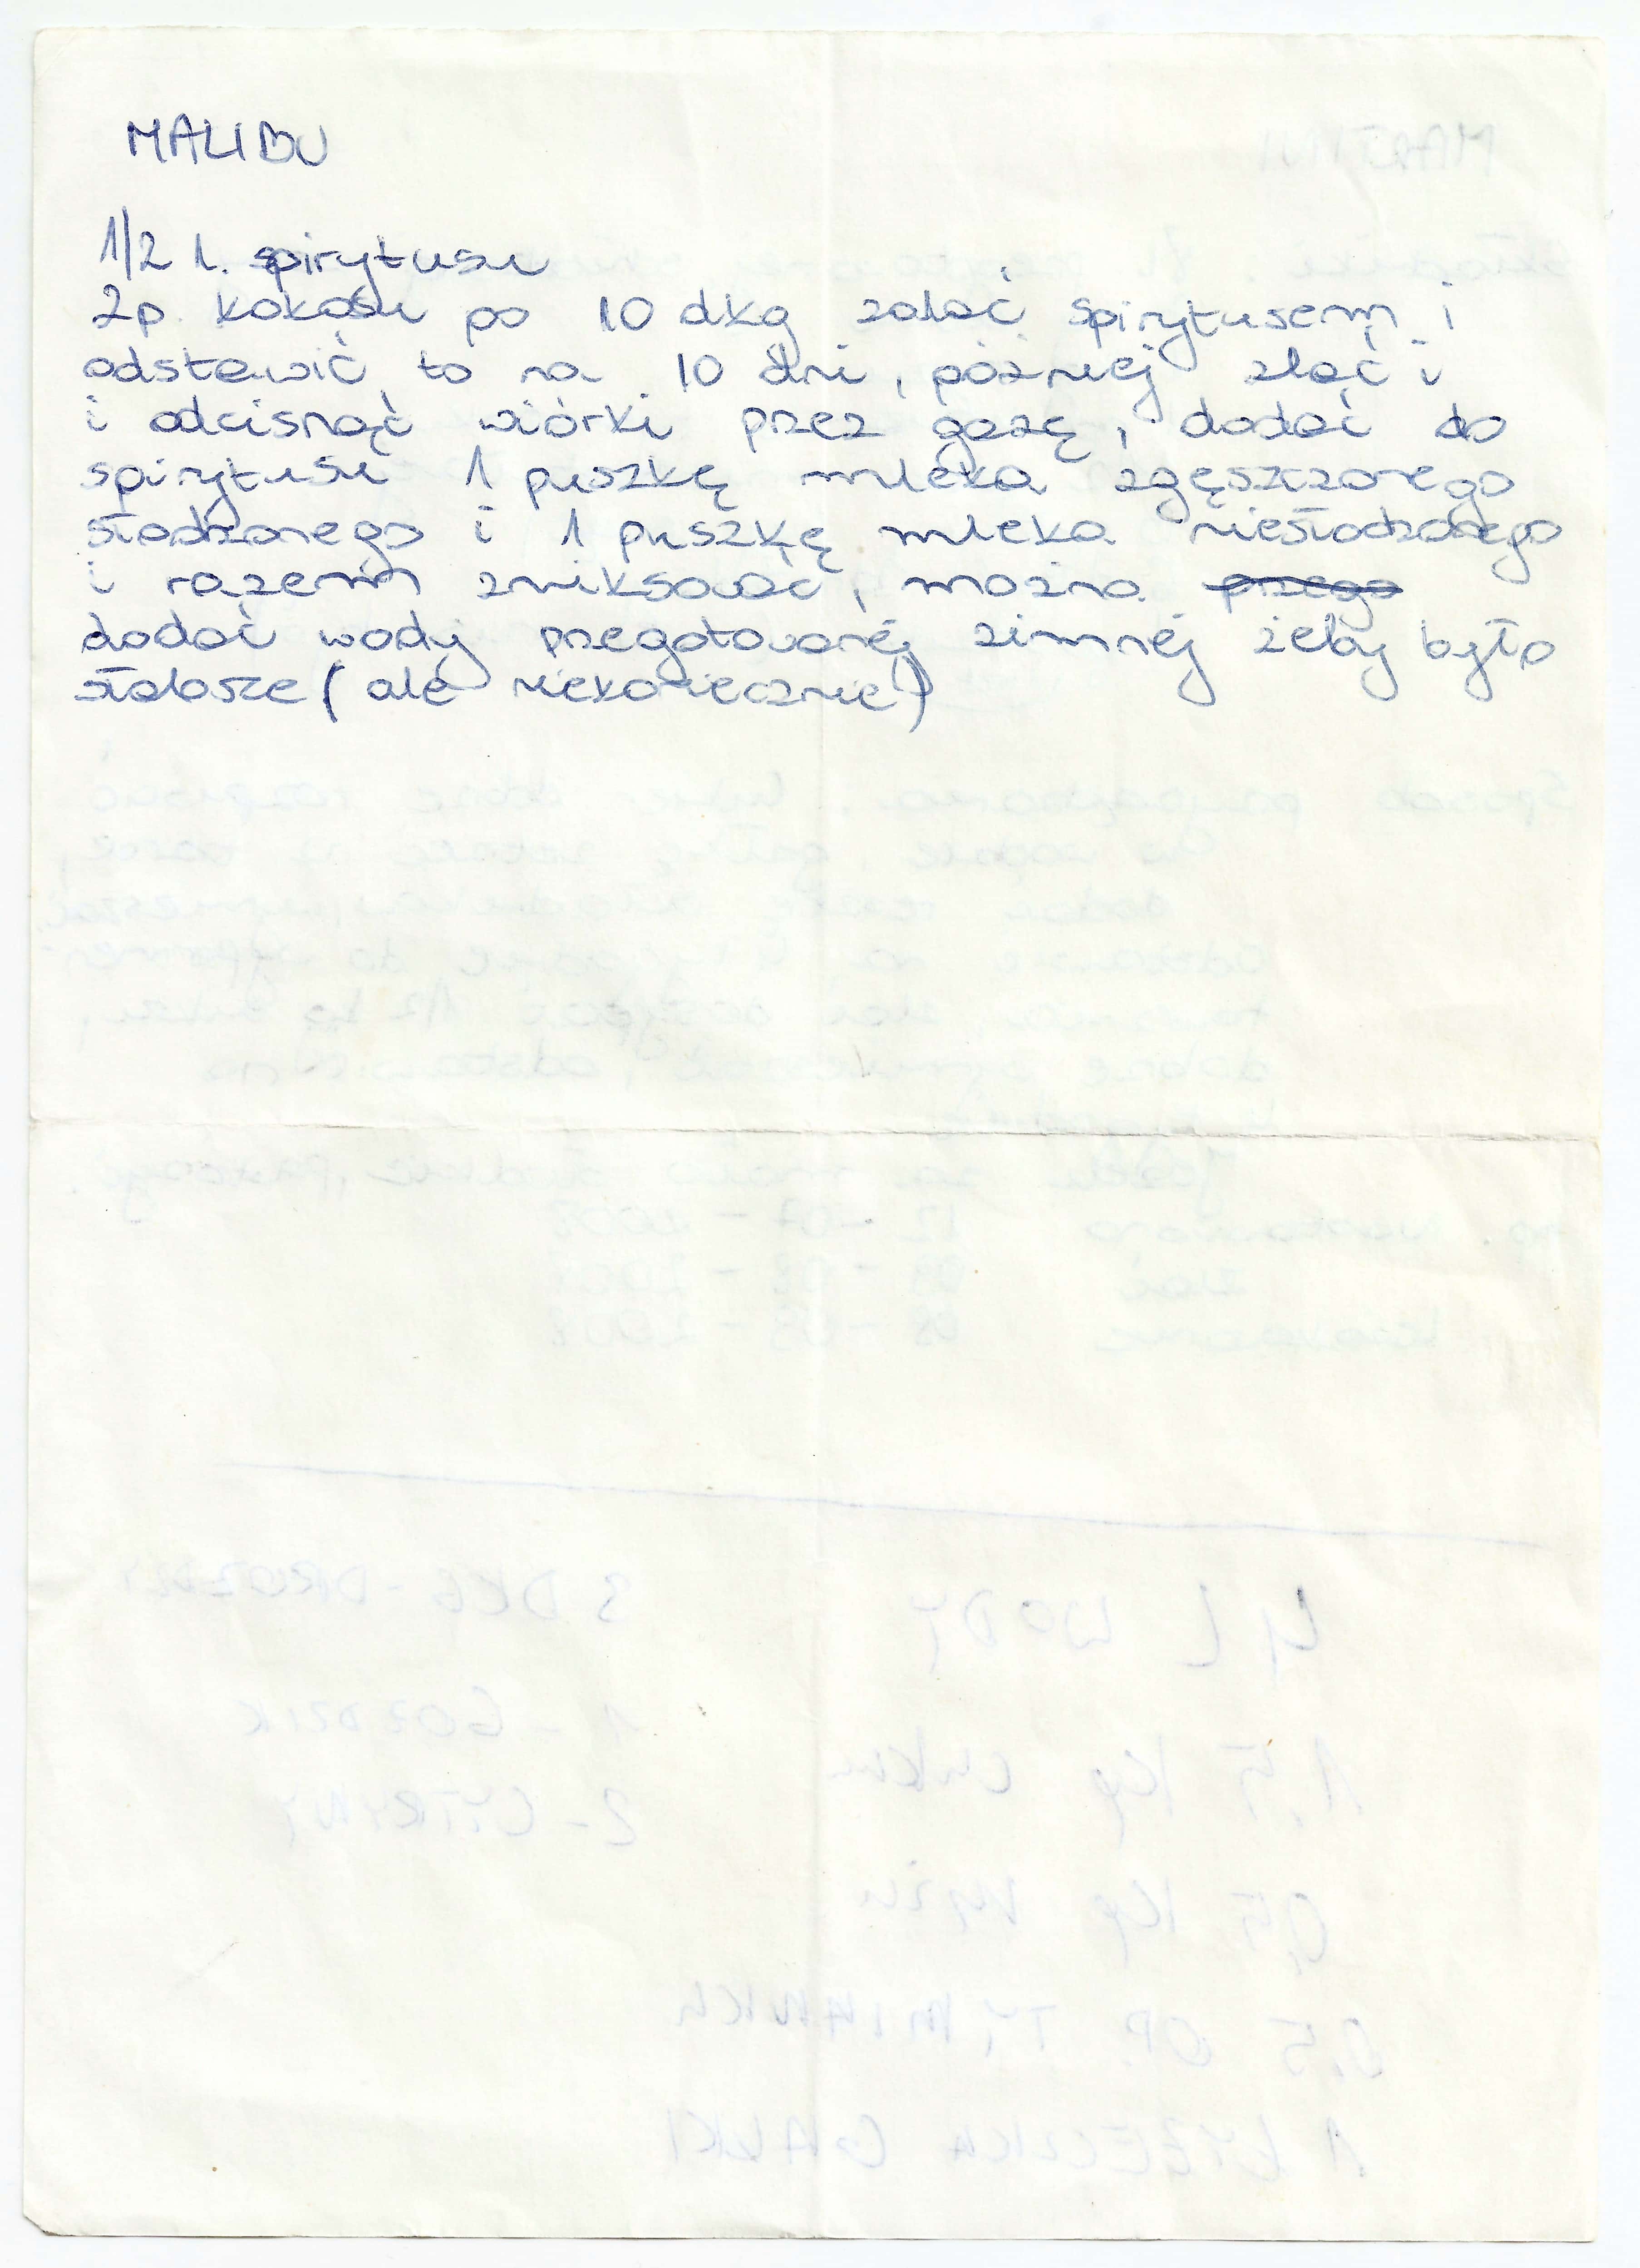 MALIBU
1/2 l. spirytusu
2p. kokosu po 10 dkg zalać spirytusem i
odstawić to na 10 dni, później zlać i
i odcisnąć wiórki przez gazę, dodać do
spirytusu 1 puszkę mleka zgęszczonego
słodzonego i 1 puszkę mleka niesłodzonego
i razem zmiksować, można przego
dodać wody przegotowanej zimnej żeby było
słabsze (ale niekoniecznie)